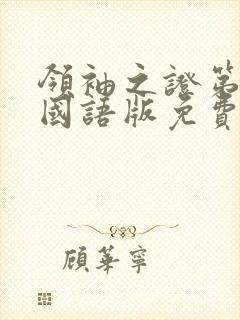 領袖之證第
國語版免費
顧華寧